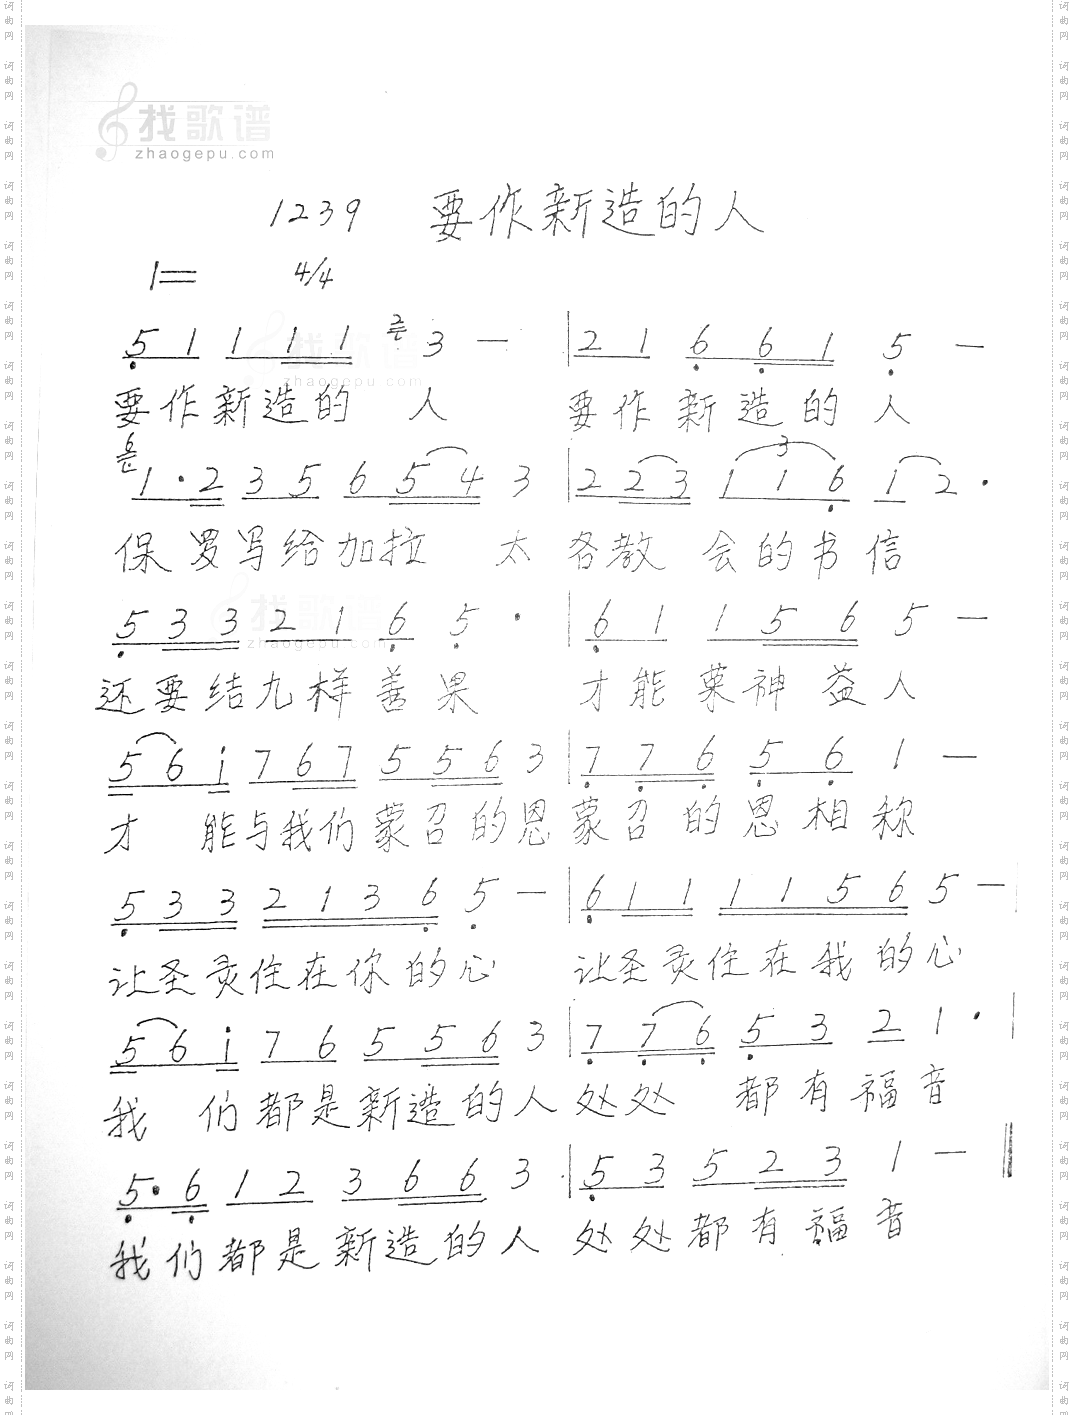 找歌谱
zhaogepu.com
1239 要作新造的人
1= 4/4
5 1 1 1 1 2 3 — | 2 1 6 6 1 5 —
要作新造的 人 要作新造的人
6 1 · 2 3 5 6 5 4 3 | 2 2 3 1 1 6 1 2 ·
3
保罗写给加拉 太 各教 会的书信
5 3 3 2 1 6 5 · | 6 1 1 5 6 5 —
还要结九样善果 才能荣神益人
5 6 i 7 6 7 5 5 6 3 | 7 7 6 5 6 1 —
才 能与我们蒙召的恩蒙召的恩相称
5 3 3 2 1 3 6 5 — | 6 1 1 1 1 5 6 5 —
让圣灵住在你的心 让圣灵住在我的心
5 6 i 7 6 5 5 6 3 | 7 7 6 5 3 2 1 · |
我 们都是新造的人处处 都有福音
5 · 6 1 2 3 6 6 3 · | 5 3 5 2 3 1 — ‖
我们都是新造的人 处处都有福音
找歌谱
zhaogepu.com
找歌谱
zhaogepu.com
词曲网